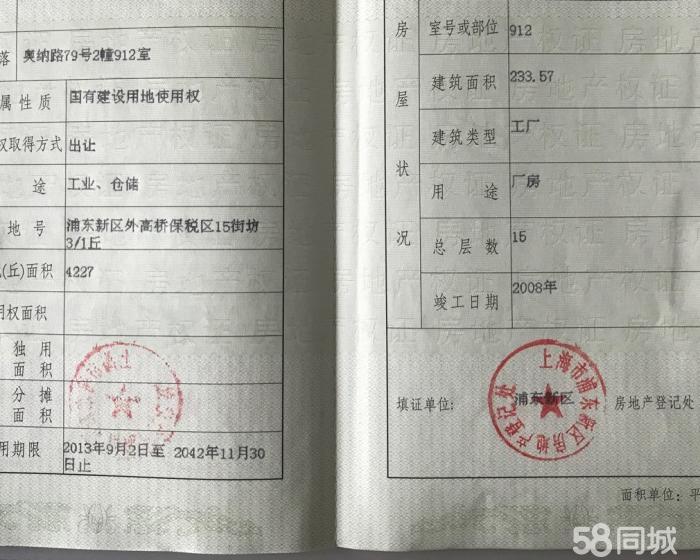 落 奥纳路79号2幢912室
属性质 国有建设用地使用权
权取得方式 出让
途 工业、仓储
地号 浦东新区外高桥保税区15街坊
3/1丘
(丘)面积 4227
用权面积
独用
面积
分摊
面积
用期限 2013年9月2日至 2042年11月30
日止
房屋状况
室号或部位 912
建筑面积 233.57
建筑类型 工厂
用途 厂房
总层数 15
竣工日期 2008年
填证单位: 浦东新区 房地产登记处
上海市浦东新区房地产登记处
面积单位:平
58同城